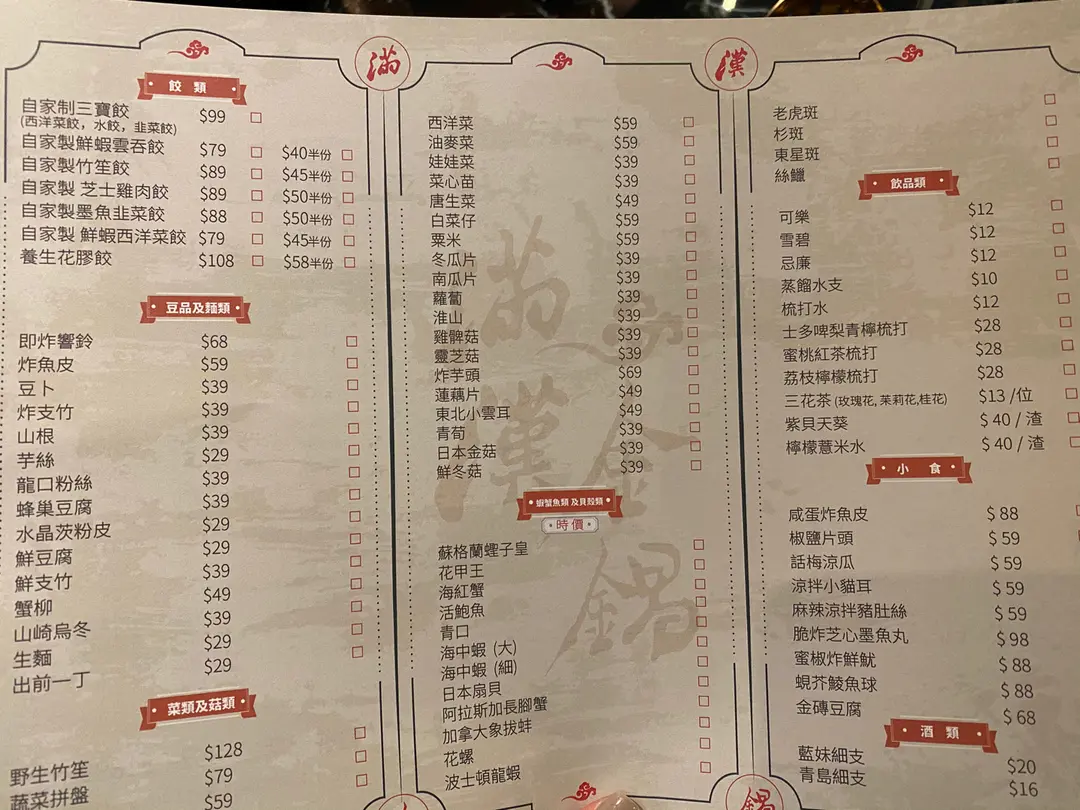 滿
漢
餃 類
自家制三寶餃 $99
(西洋菜餃，水餃，韭菜餃)
自家製鮮蝦雲吞餃 $79 $40半份
自家製竹笙餃 $89 $45半份
自家製 芝士雞肉餃 $89 $50半份
自家製墨魚韭菜餃 $88 $50半份
自家製 鮮蝦西洋菜餃 $79 $45半份
養生花膠餃 $108 $58半份
豆品及麵類
即炸響鈴 $68
炸魚皮 $59
豆卜 $39
炸支竹 $39
山根 $39
芋絲 $29
龍口粉絲 $39
蜂巢豆腐 $39
水晶茨粉皮 $29
鮮豆腐 $29
鮮支竹 $39
蟹柳 $49
山崎烏冬 $39
生麵 $29
出前一丁 $29
菜類及菇類
野生竹笙 $128
蔬菜拼盤 $79
$59
西洋菜 $59
油麥菜 $59
娃娃菜 $39
菜心苗 $39
唐生菜 $49
白菜仔 $59
粟米 $59
冬瓜片 $39
南瓜片 $39
蘿蔔 $39
淮山 $39
雞髀菇 $39
靈芝菇 $39
炸芋頭 $69
蓮藕片 $49
東北小雲耳 $49
青筍 $39
日本金菇 $39
鮮冬菇 $39
蝦蟹魚類 及貝殼類
時價
蘇格蘭蟶子皇
花甲王
海紅蟹
活鮑魚
青口
海中蝦 (大)
海中蝦 (細)
日本扇貝
阿拉斯加長腳蟹
加拿大象拔蚌
花螺
波士頓龍蝦
滿漢金鍋
老虎斑
杉斑
東星斑
絲鱲
飲品類
可樂 $12
雪碧 $12
忌廉 $12
蒸餾水支 $10
梳打水 $12
士多啤梨青檸梳打 $28
蜜桃紅茶梳打 $28
荔枝檸檬梳打 $28
三花茶 (玫瑰花, 茉莉花,桂花) $13 /位
紫貝天葵 $ 40 / 渣
檸檬薏米水 $ 40 / 渣
小 食
咸蛋炸魚皮 $ 88
椒鹽片頭 $ 59
話梅涼瓜 $ 59
涼拌小貓耳 $ 59
麻辣涼拌豬肚絲 $ 59
脆炸芝心墨魚丸 $ 98
蜜椒炸鮮魷 $ 88
蜆芥鯪魚球 $ 88
金磚豆腐 $ 68
酒 類
藍妹細支 $20
青島細支 $16
鍋